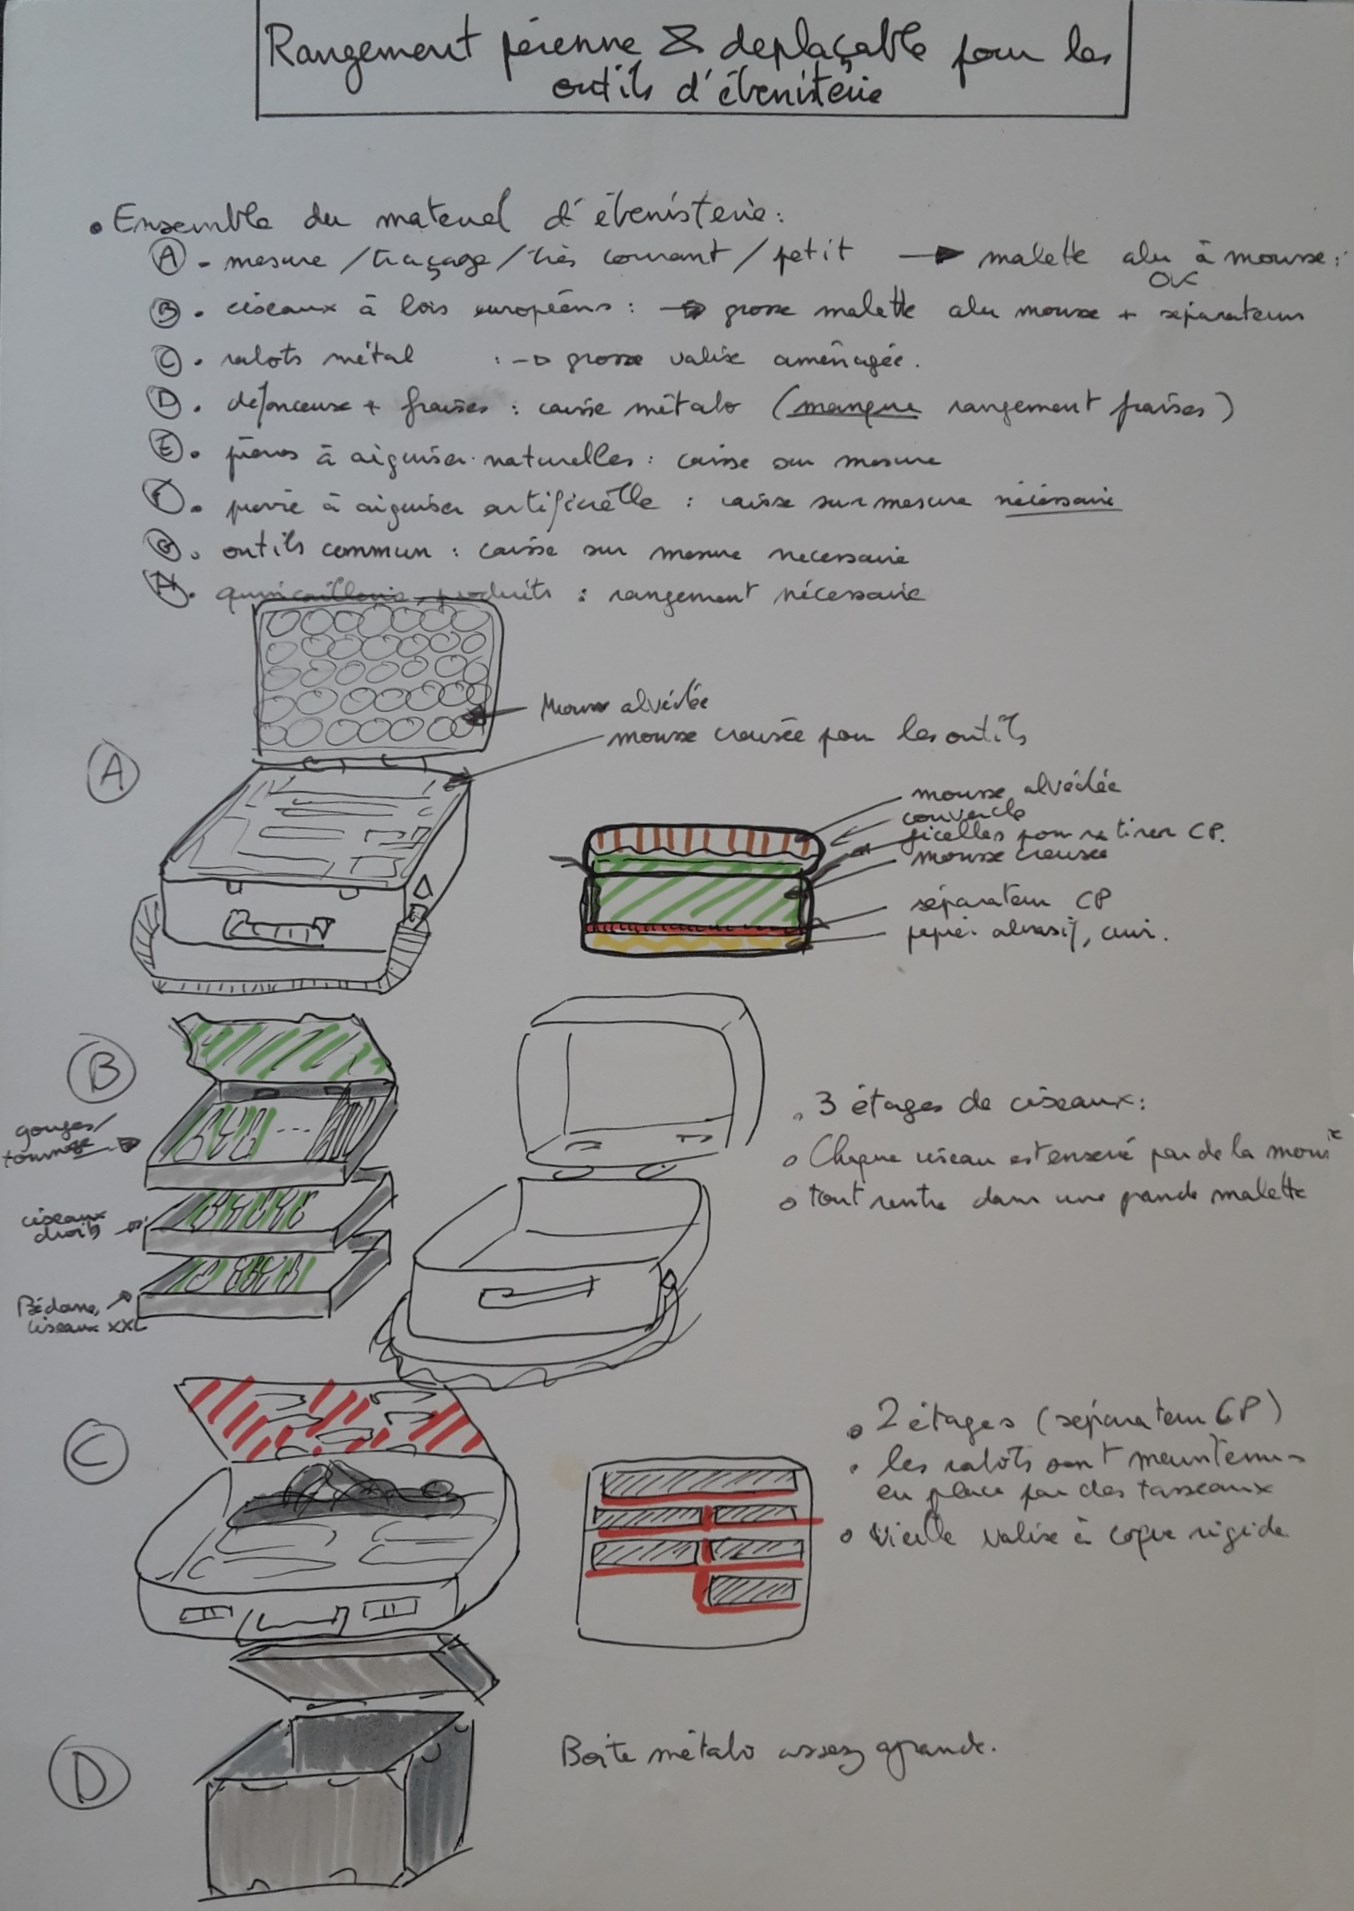 Rangement pérenne & deplaçable pour les
outils d'ébenisterie
• Ensemble du materiel d'ébenisterie:
A - mesure / traçage / très courant / petit → malette alu à mousse : OK
B • ciseaux à bois européens : → grosse malette alu mousse + séparateurs
C • rabots métal : → grosse valise aménagée.
D • défonceuse + fraises : caisse métalo (manque rangement fraises)
E • pierres à aiguiser naturelles : caisse sur mesure
F • pierre à aiguiser artificielle : caisse sur mesure nécéssaire
G • outils commun : caisse sur mesure necessaire
H • quincaillerie, produits : rangement nécessaire
Mousse alvéolée
mousse creusée pour les outils
A
mousse alvéolée
couvercle
ficelles pour retirer CP.
mousse creusée
séparateur CP
papier abrasif, cuir.
B
gouges/
ciseaux
droits
Bédane,
ciseaux XXL
. 3 étages de ciseaux:
o Chaque ciseau est enserré par de la mousse
o tout rentre dans une grande malette
C
• 2 étages (séparateur CP)
• les rabots sont maintenus
en place par des tasseaux
o Vieille valise à coque rigide
D
Boite métalo assez grande.